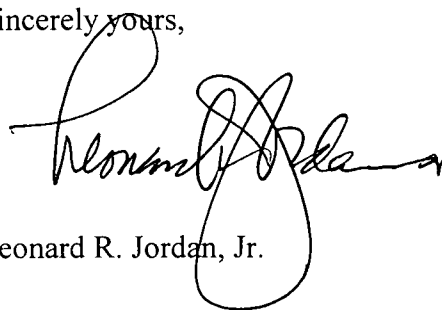 incerely yours,
Leonard R. Jordan
eonard R. Jordan, Jr.